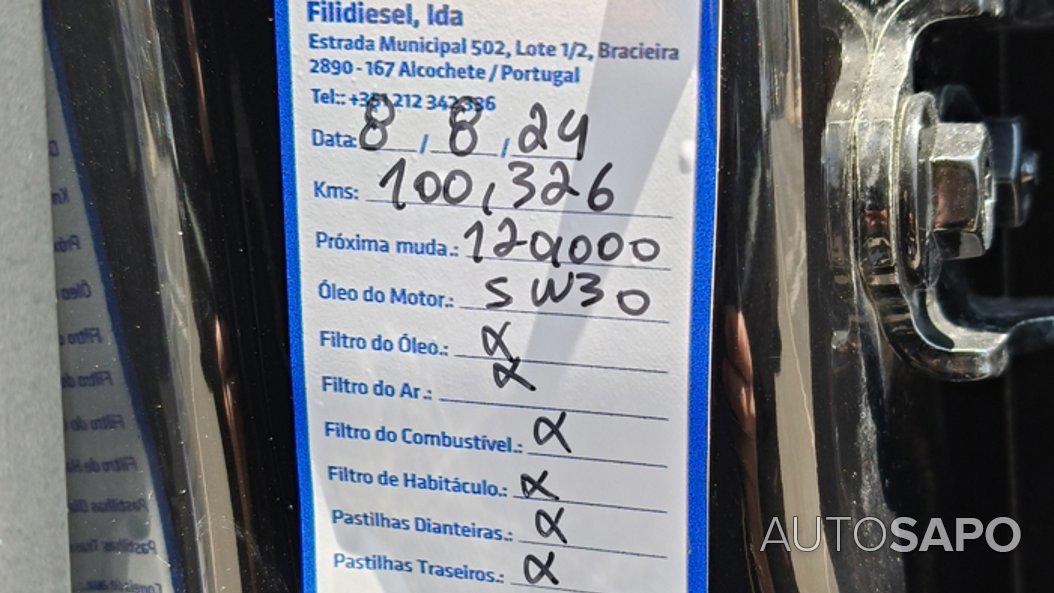 Filidiesel, lda
Estrada Municipal 502, Lote 1/2, Bracieira
2890 - 167 Alcochete / Portugal
Tel:: +351 212 342 336
Data: 8 / 8 / 24
Kms: 100,326
Próxima muda.: 120,000
Óleo do Motor.: 5W30
Filtro do Óleo.: X
Filtro do Ar.: X
Filtro do Combustível.: X
Filtro de Habitáculo.: X
Pastilhas Dianteiras.: X
Pastilhas Traseiros.: X
AUTOSAPO